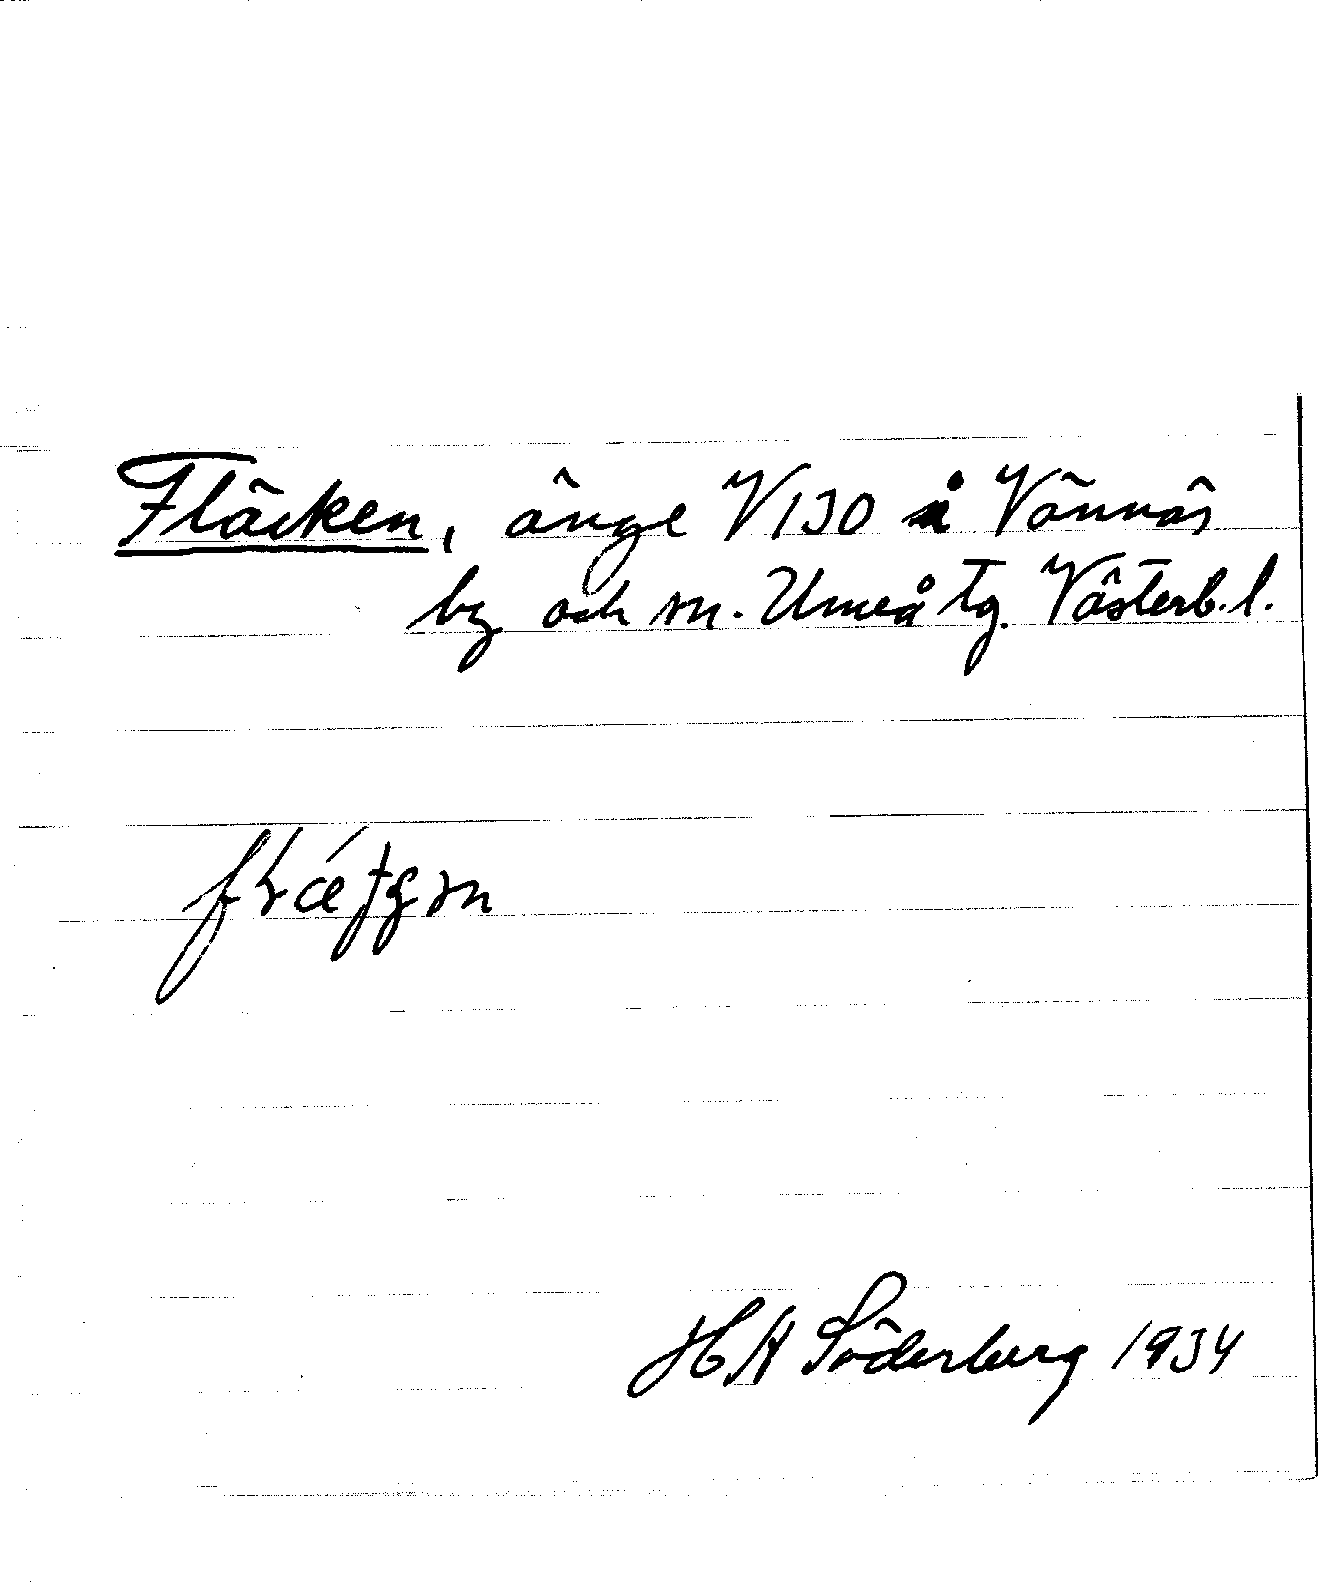 Fläcken, änge V130 å Vännäs
by och sn. Umeå tg. Västerb.l.
H A Söderberg 1934